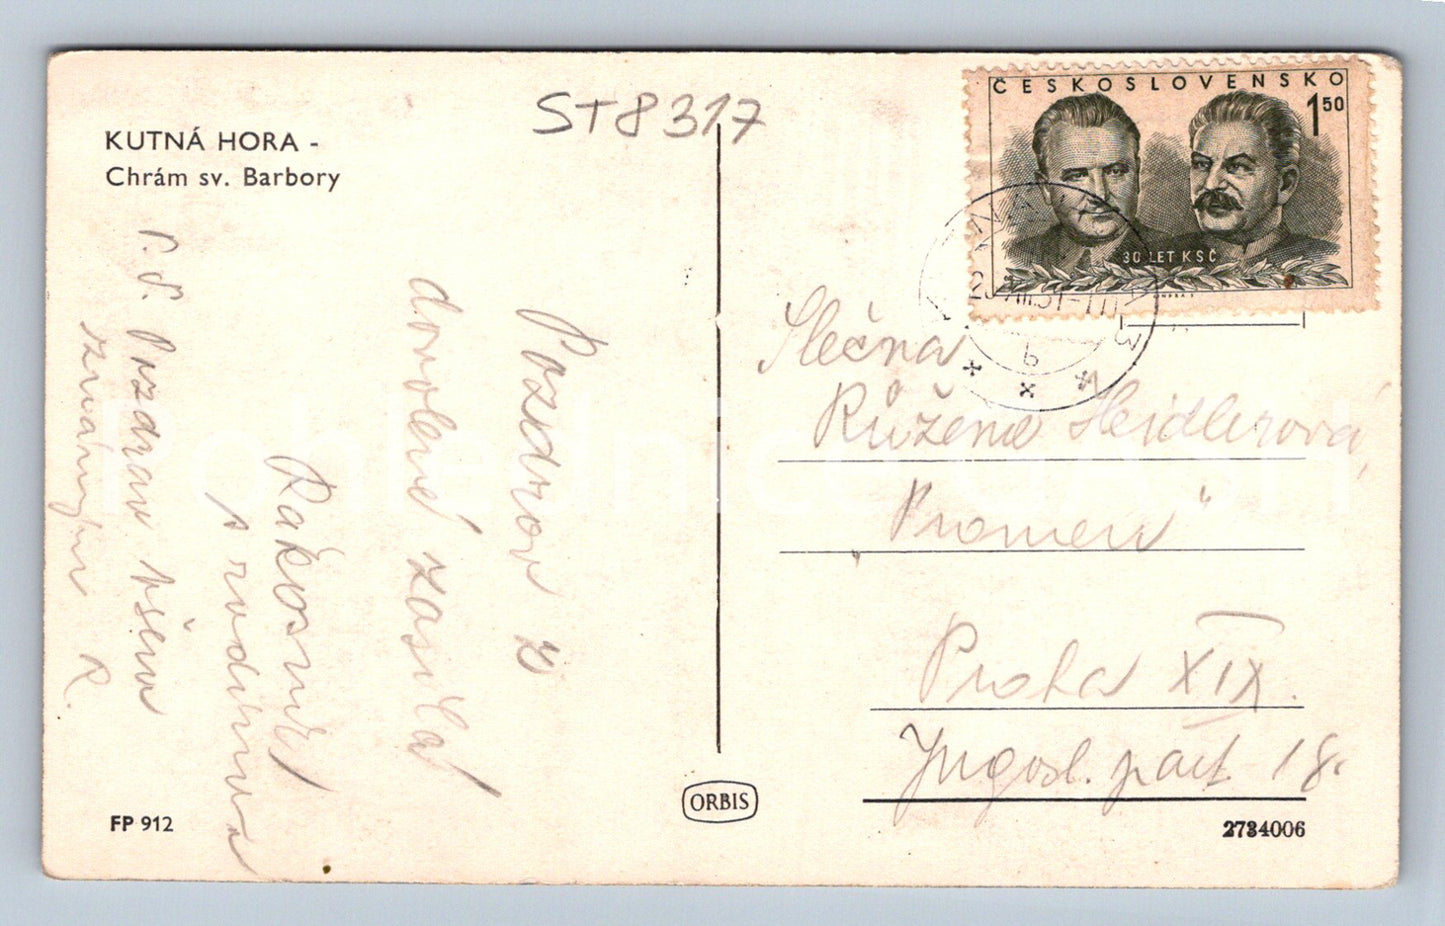 KUTNÁ HORA -
Chrám sv. Barbory
ST8317
ČESKOSLOVENSKO
1 50
30 LET KSČ
Pozdrav z
dovolené zasílá
Rákosník
s rodinou
P.S. Pozdrav všem
známým R.
Slečna
Růžena Heidlerová
"Pramen"
Praha XIX.
Jugosl. part. 18.
FP 912
ORBIS
2734006